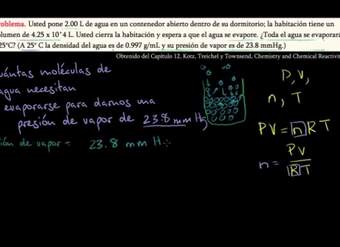 oblema. Usted pone 2.00 L de agua en un contenedor abierto dentro de su dormitorio; la habitación tiene un
lumen de 4.25 x 10^4 L. Usted cierra la habitación y espera a que el agua se evapore. ¿Toda el agua se evaporará
25°C? (A 25° C la densidad del agua es de 0.997 g/mL y su presión de vapor es de 23.8 mmHg.)
Obtenido del Capítulo 12, Kotz, Treichel y Townsend, Chemistry and Chemical Reactivi
uántas moléculas de
agua necesitan
evaporarse para darnos una
presión de vapor de 23.8 mm Hg
ión de vapor = 23.8 mm H
P, V,
n, T
PV = nRT
n = PV
RT